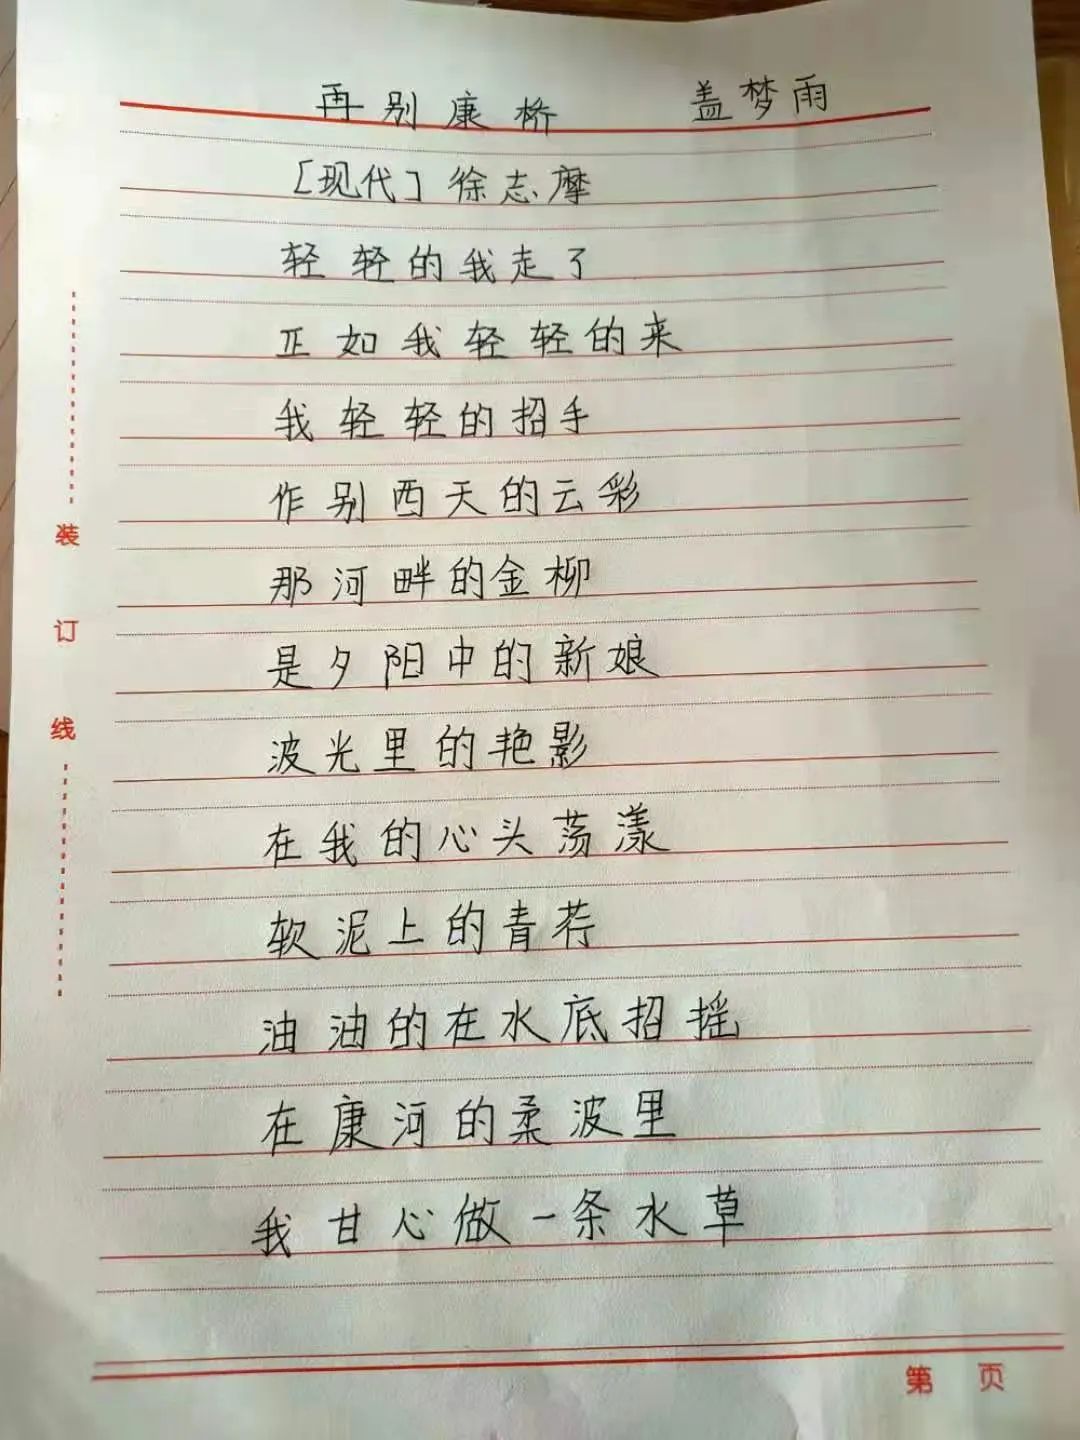 再别康桥 盖梦雨
[现代]徐志摩
轻轻的我走了
正如我轻轻的来
我轻轻的招手
作别西天的云彩
那河畔的金柳
是夕阳中的新娘
波光里的艳影
在我的心头荡漾
软泥上的青荇
油油的在水底招摇
在康河的柔波里
我甘心做一条水草
装订线
第 页